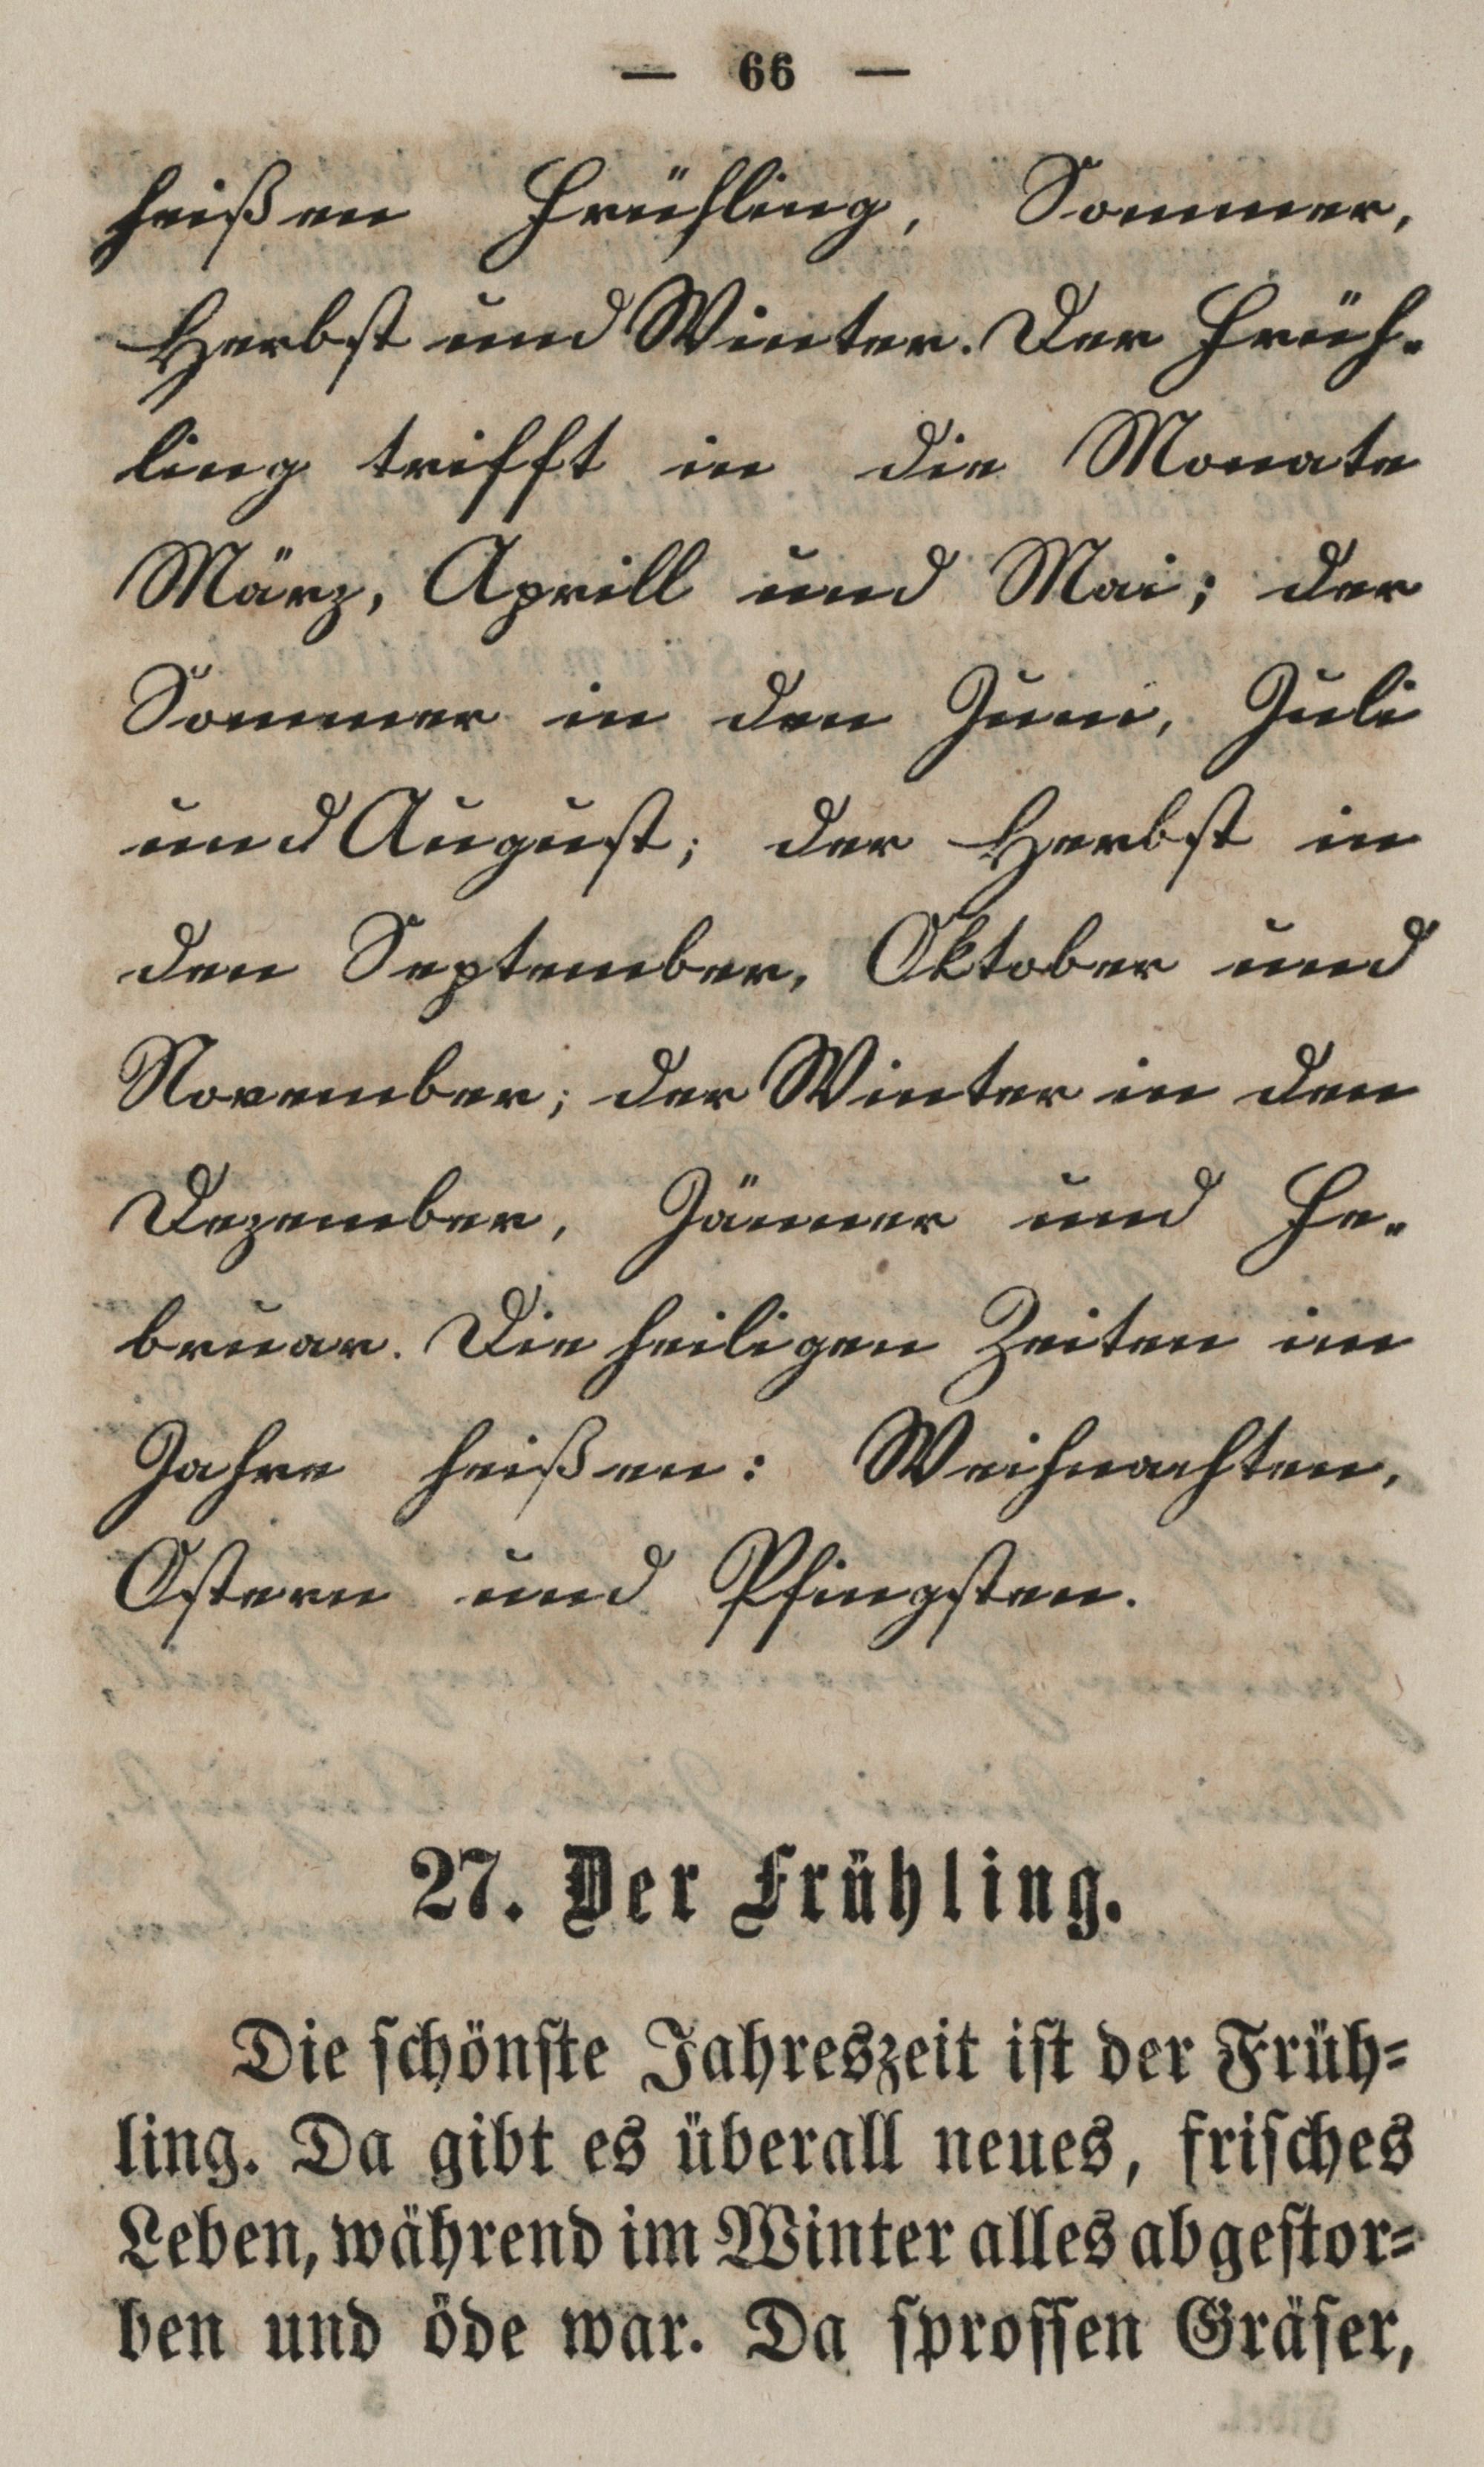 — 66 —
heißen Frühling, Sommer,
Herbst und Winter. Der Früh-
ling trifft in die Monate
März, Aprill und Mai; der
Sommer in den Juni, Juli
und August; der Herbst in
den September, Oktober und
November; der Winter in den
Dezember, Jänner und Fe-
bruar. Die heiligen Zeiten im
Jahre heißen: Weihnachten,
Ostern und Pfingsten.
27. Der Frühling.
Die schönste Jahreszeit ist der Früh-
ling. Da gibt es überall neues, frisches
Leben, während im Winter alles abgestor-
ben und öde war. Da sprossen Gräser,